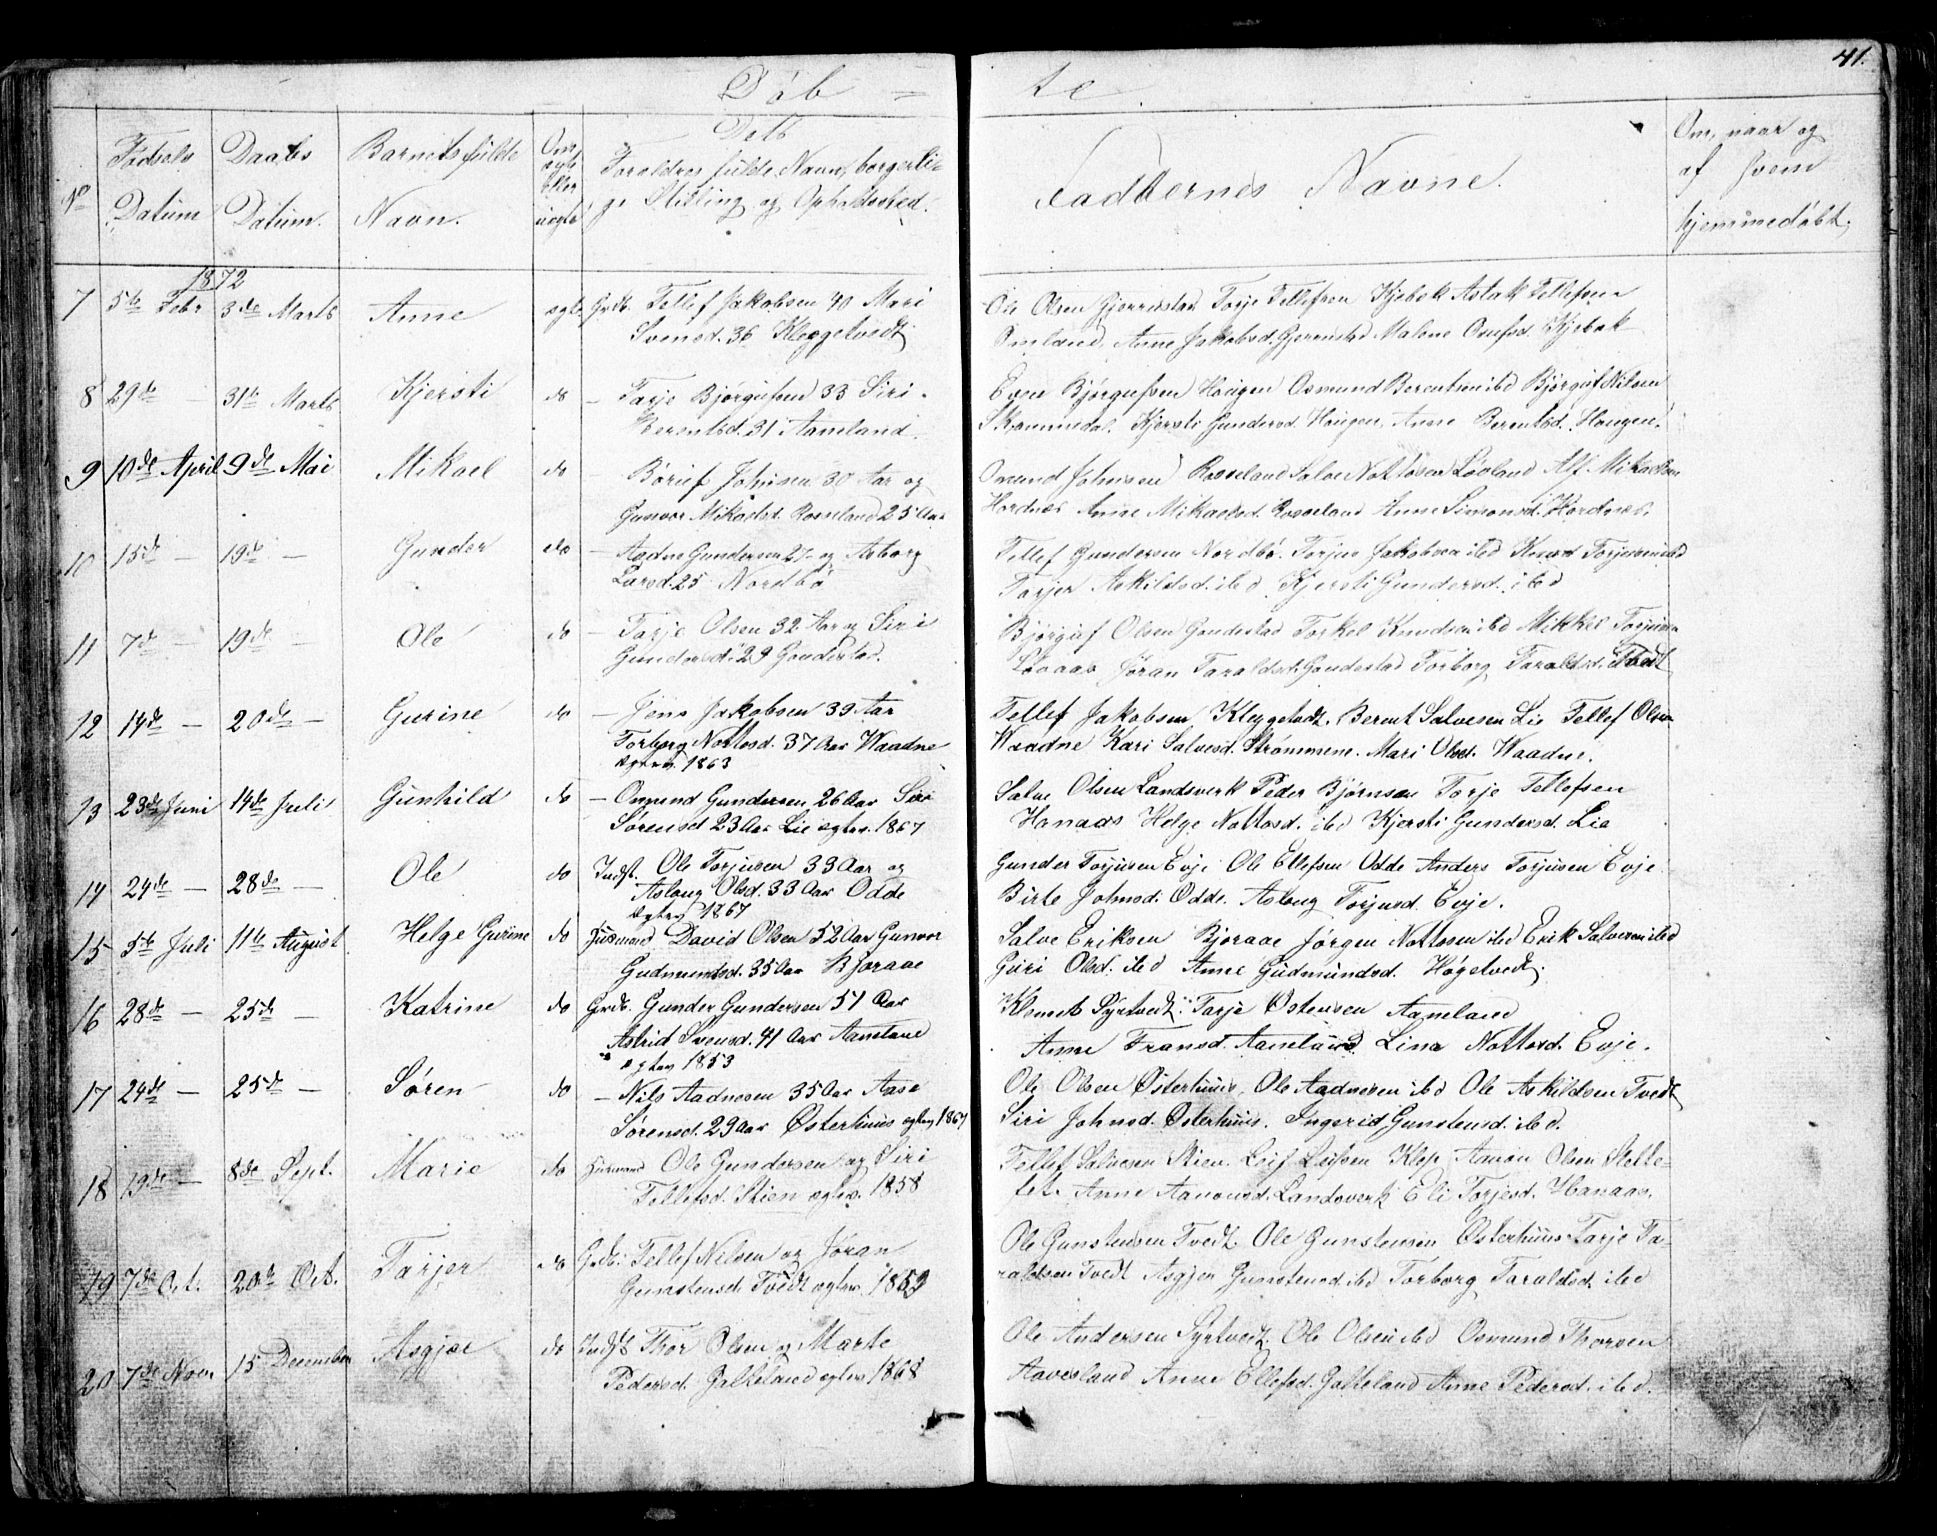 41.
Døb = te
No Fødsels Datum Daabs Datum. Barnets fulde Navn. Om ægte eller uægte Dets Forældres fulde Navn, borgerli=
ge Stilling og Opholdssted. Faddernes Navne. Om, naar og af hvem hjemmedøbt,
1872
7 5te Febr 3de Marts Anne ægte Grdb. Tellef Jakobsen 40 Mari
Svensd. 36 Kleggetvedt.
Ole Olsen Gjerrestad Torje Tellefsen Kjebek Aslak Tellefsen
Omland, Anne Jakobsd. Gjerrestad Malene Kjebek
8 29de 31te Marts Kjersti do — Tarje Bjørgufsen 33 Siri
Berentsd. 31 Aamland.
Even Bjørgufsen Hougen Osmund Berentsen ibd Bjørguf Nilsen
Skrommedal. Kjersti Gundersd. Hougen, Anne Berentsd. Hougen.
9 10de April 9de Mai Mikael do Børuf Johnsen 30 Aar og
Gunvor Mikaelsd. Rosseland 25 Aar
Omund Johnsen Rosseland Salve Nottosen Løvland Alf Mikaelsen
Hordnæs Anne Mikaelsd. Rosseland Anne Simonsd. Hordnæs.
10 15de — 19de — Gunder do — Aadne Gundersen 27 og Asborg
Larsd. 25 Nordbø
Tellef Gundersen Nordbø. Torjus Jakobsen ibd Knud Torjusen ibd
Torjer Askildsd. ibd Kjersti Gundersd. ibd
11 7de — 19de — Ole do — Tarje Olsen 32 Aar og Siri
Gundersd. 29 Goudestad.
Bjørguf Olsen Goudestad Torkel Knudsen ibd Mikkel Torjusen
Løvaas Jøran Taraldsd. Goudestad Torborg Taraldsd. Tvedt
12 14de — 20de — Gurine do — Jens Jakobsen 39 Aar
Torborg Nottosd. 37 Aar Waadne
Ægtev. 1863
Tellef Jakobsen Kleggetvedt. Berent Salvesen Lie Tellef Olsen
Waadne Kari Salvesd. Strømmene. Mari Olsd. Waadne.
13 23de Juni 14de Juli Gunhild do — Omund Gundersen 26 Aar Siri
Sørensd 23 Aar Lie ægtev. 1867
Salve Olsen Landsverk Peder Bjørnsen Torje Tellefsen
Hanaas Helge Nottosd. ibd Kjersti Gundersd. Lie
14 24de — 28de — Ole do Indst. Ole Torjusen 33 Aar og
Aslaug Olsd. 33 Aar Odde
Ægtev 1867
Gunder Torjusen Evje Ole Ellefsen Odde Anders Torjusen Evje
Birte Johnsd. Odde. Aslaug Torjusd. Evje.
15 5te Juli 11te August Helge Gurine do Husmand David Olsen 52 Aar Gunvor
Gudmundsd. 35 Aar Bjoraae
Salve Eriksen Bjoraae Jørgen Nottosen ibd Erik Salvesen ibd
Guri Olsd. ibd Anne Gudmundsd. Høgetvedt.
16 28de — 25de — Katrine do Grdb. Gunder Gundersen 51 Aar
Astrid Svensd. 41 Aar Aamland
ægtev 1853
Klemet Syrtvedt. Tarje Østensen Aamland
Anne Fransd. Aamland Lina Nottosd. Evje.
17 24de — 25de — Søren do — Nils Aadnesen 35 Aar Aase
Sørensd. 29 Aar Østerhuus ægtev 1867
Ole Olsen Østerhuus, Ole Aadnesen ibd Ole Askildsen Tvedt
Siri Johnsd. Østerhuus. Ingerid Gunstensd. ibd.
18 19de — 8de Sept. Marie do Husmand Ole Gundersen og Siri
Tellefsd. Stien ægtev. 1858
Tellef Salvesen Stien. Leif Leifsen Klep Aanon Olsen Slette=
fet. Anne Aanonsd. Landsverk Eli Torjesd. Hanaas.
19 7de Oct. 20de Oct. Tarjer do Grdb. Tellef Nilsen og Jøran
Gunstensd. Tvedt ægtev. 1859
Ole Gunstensen Tvedt. Ole Gunstensen Østerhuus Tarje Ta=
raldsen Tvedt Asgjer Gunstensd ibd Torborg Taraldsd. ibd
20 7de Novr 15 December Asgjær do Indst Thor Olsen og Marte
Pedersd. Galteland ægtev 1868
Ole Andersen Syrtvedt. Ole Olsen ibd Osmund Thorsen
Aavesland Anne Ellefsd. Galteland Anne Pedersd. ibd.